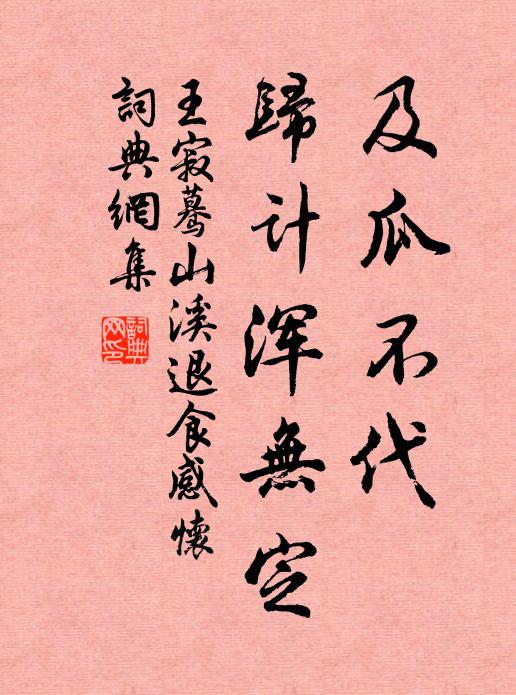 及瓜不代
歸计浑無定
王寂驀山溪退食感懷
詞典網集
詞典
网印